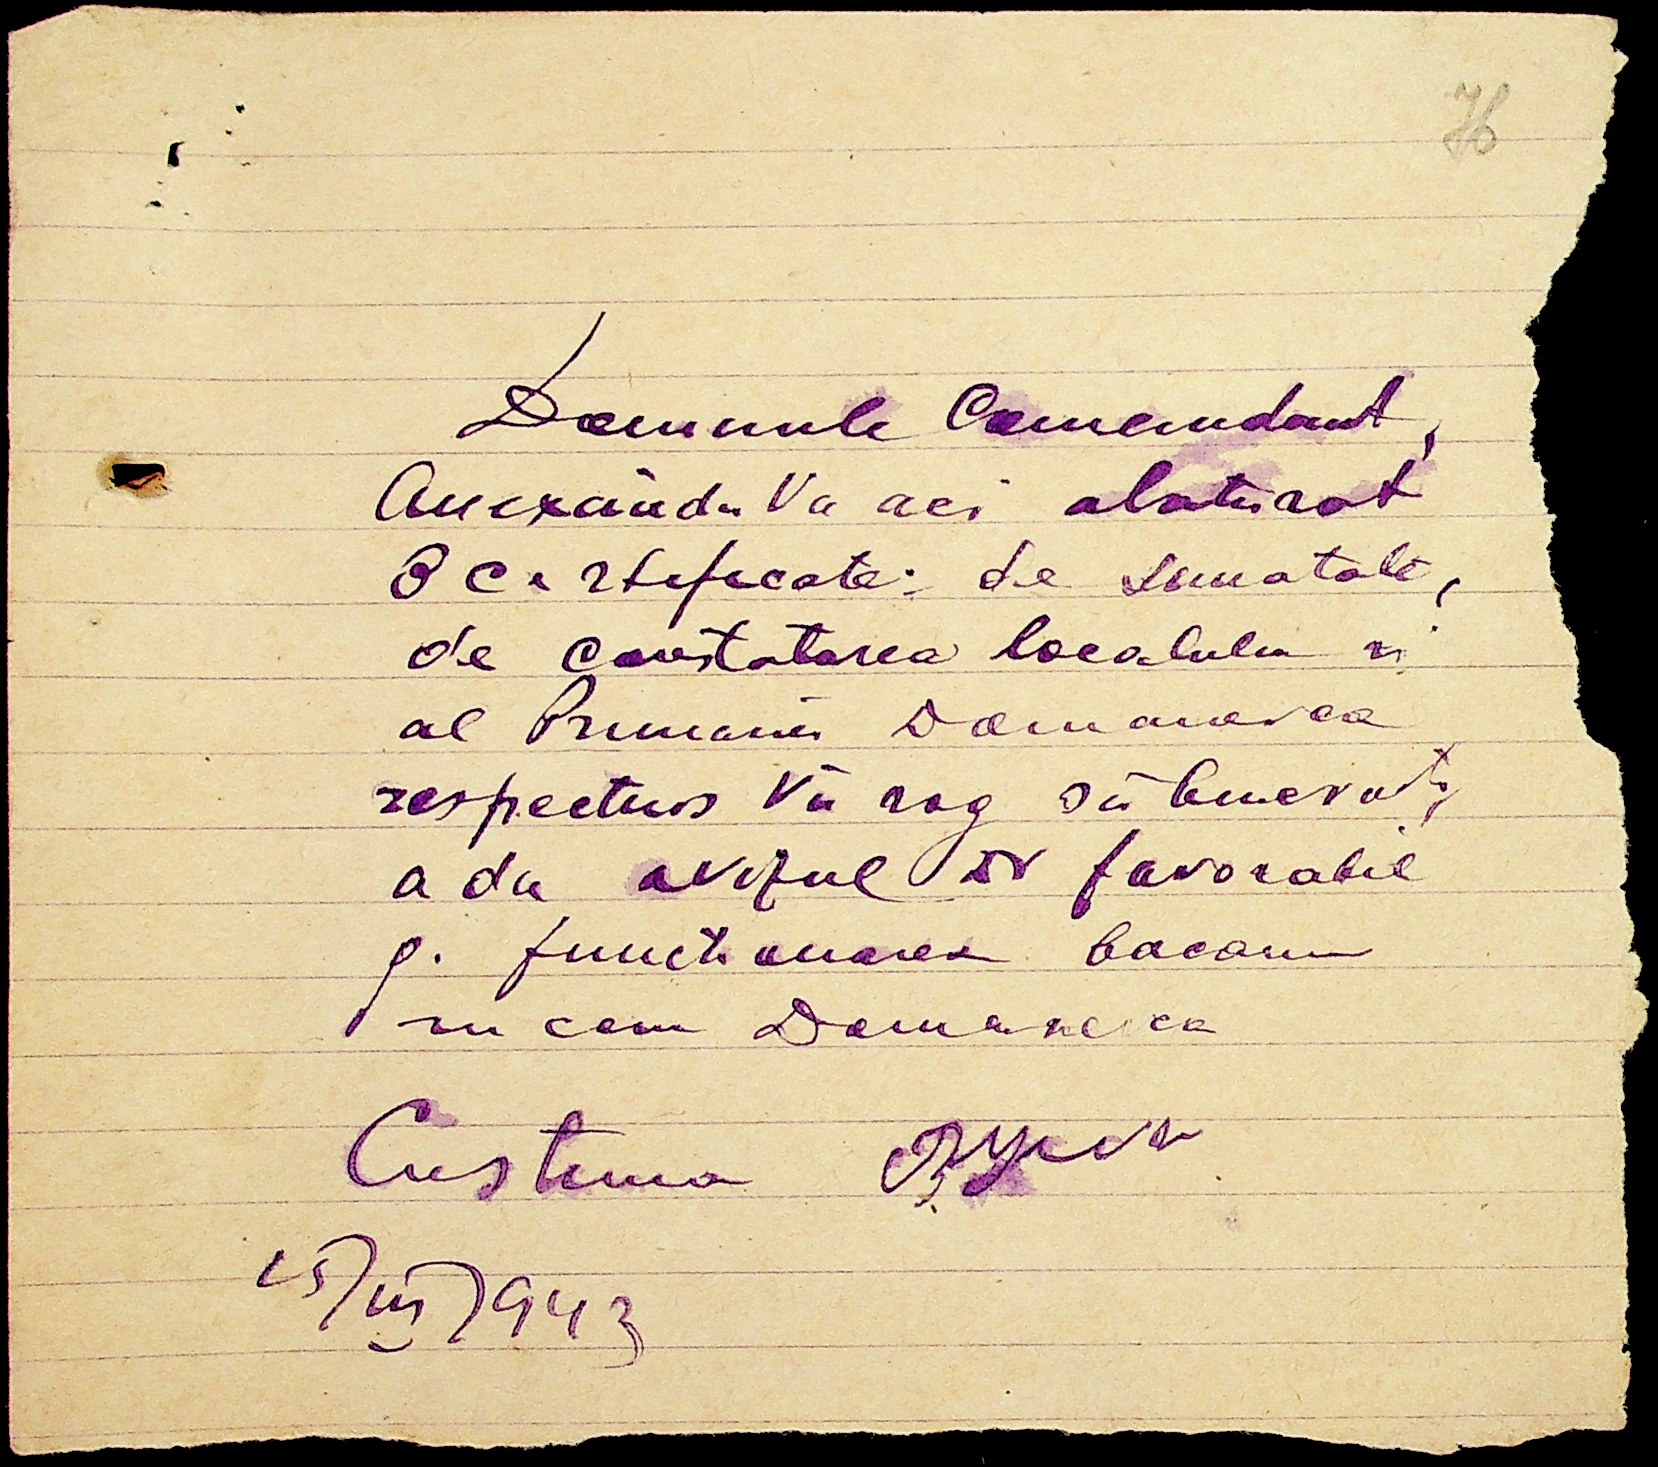 76
Domnule Comendant,
Anexându Va aci alaturat
3 Certificate: de sanatate,
de constatarea localului si
al Primariei Domanevca
respectuos Vă rog să binevoiti
a da avizul Dv favorabil
p. functionarea bacanii
in com Domanevca
Cristina
15/III/1943